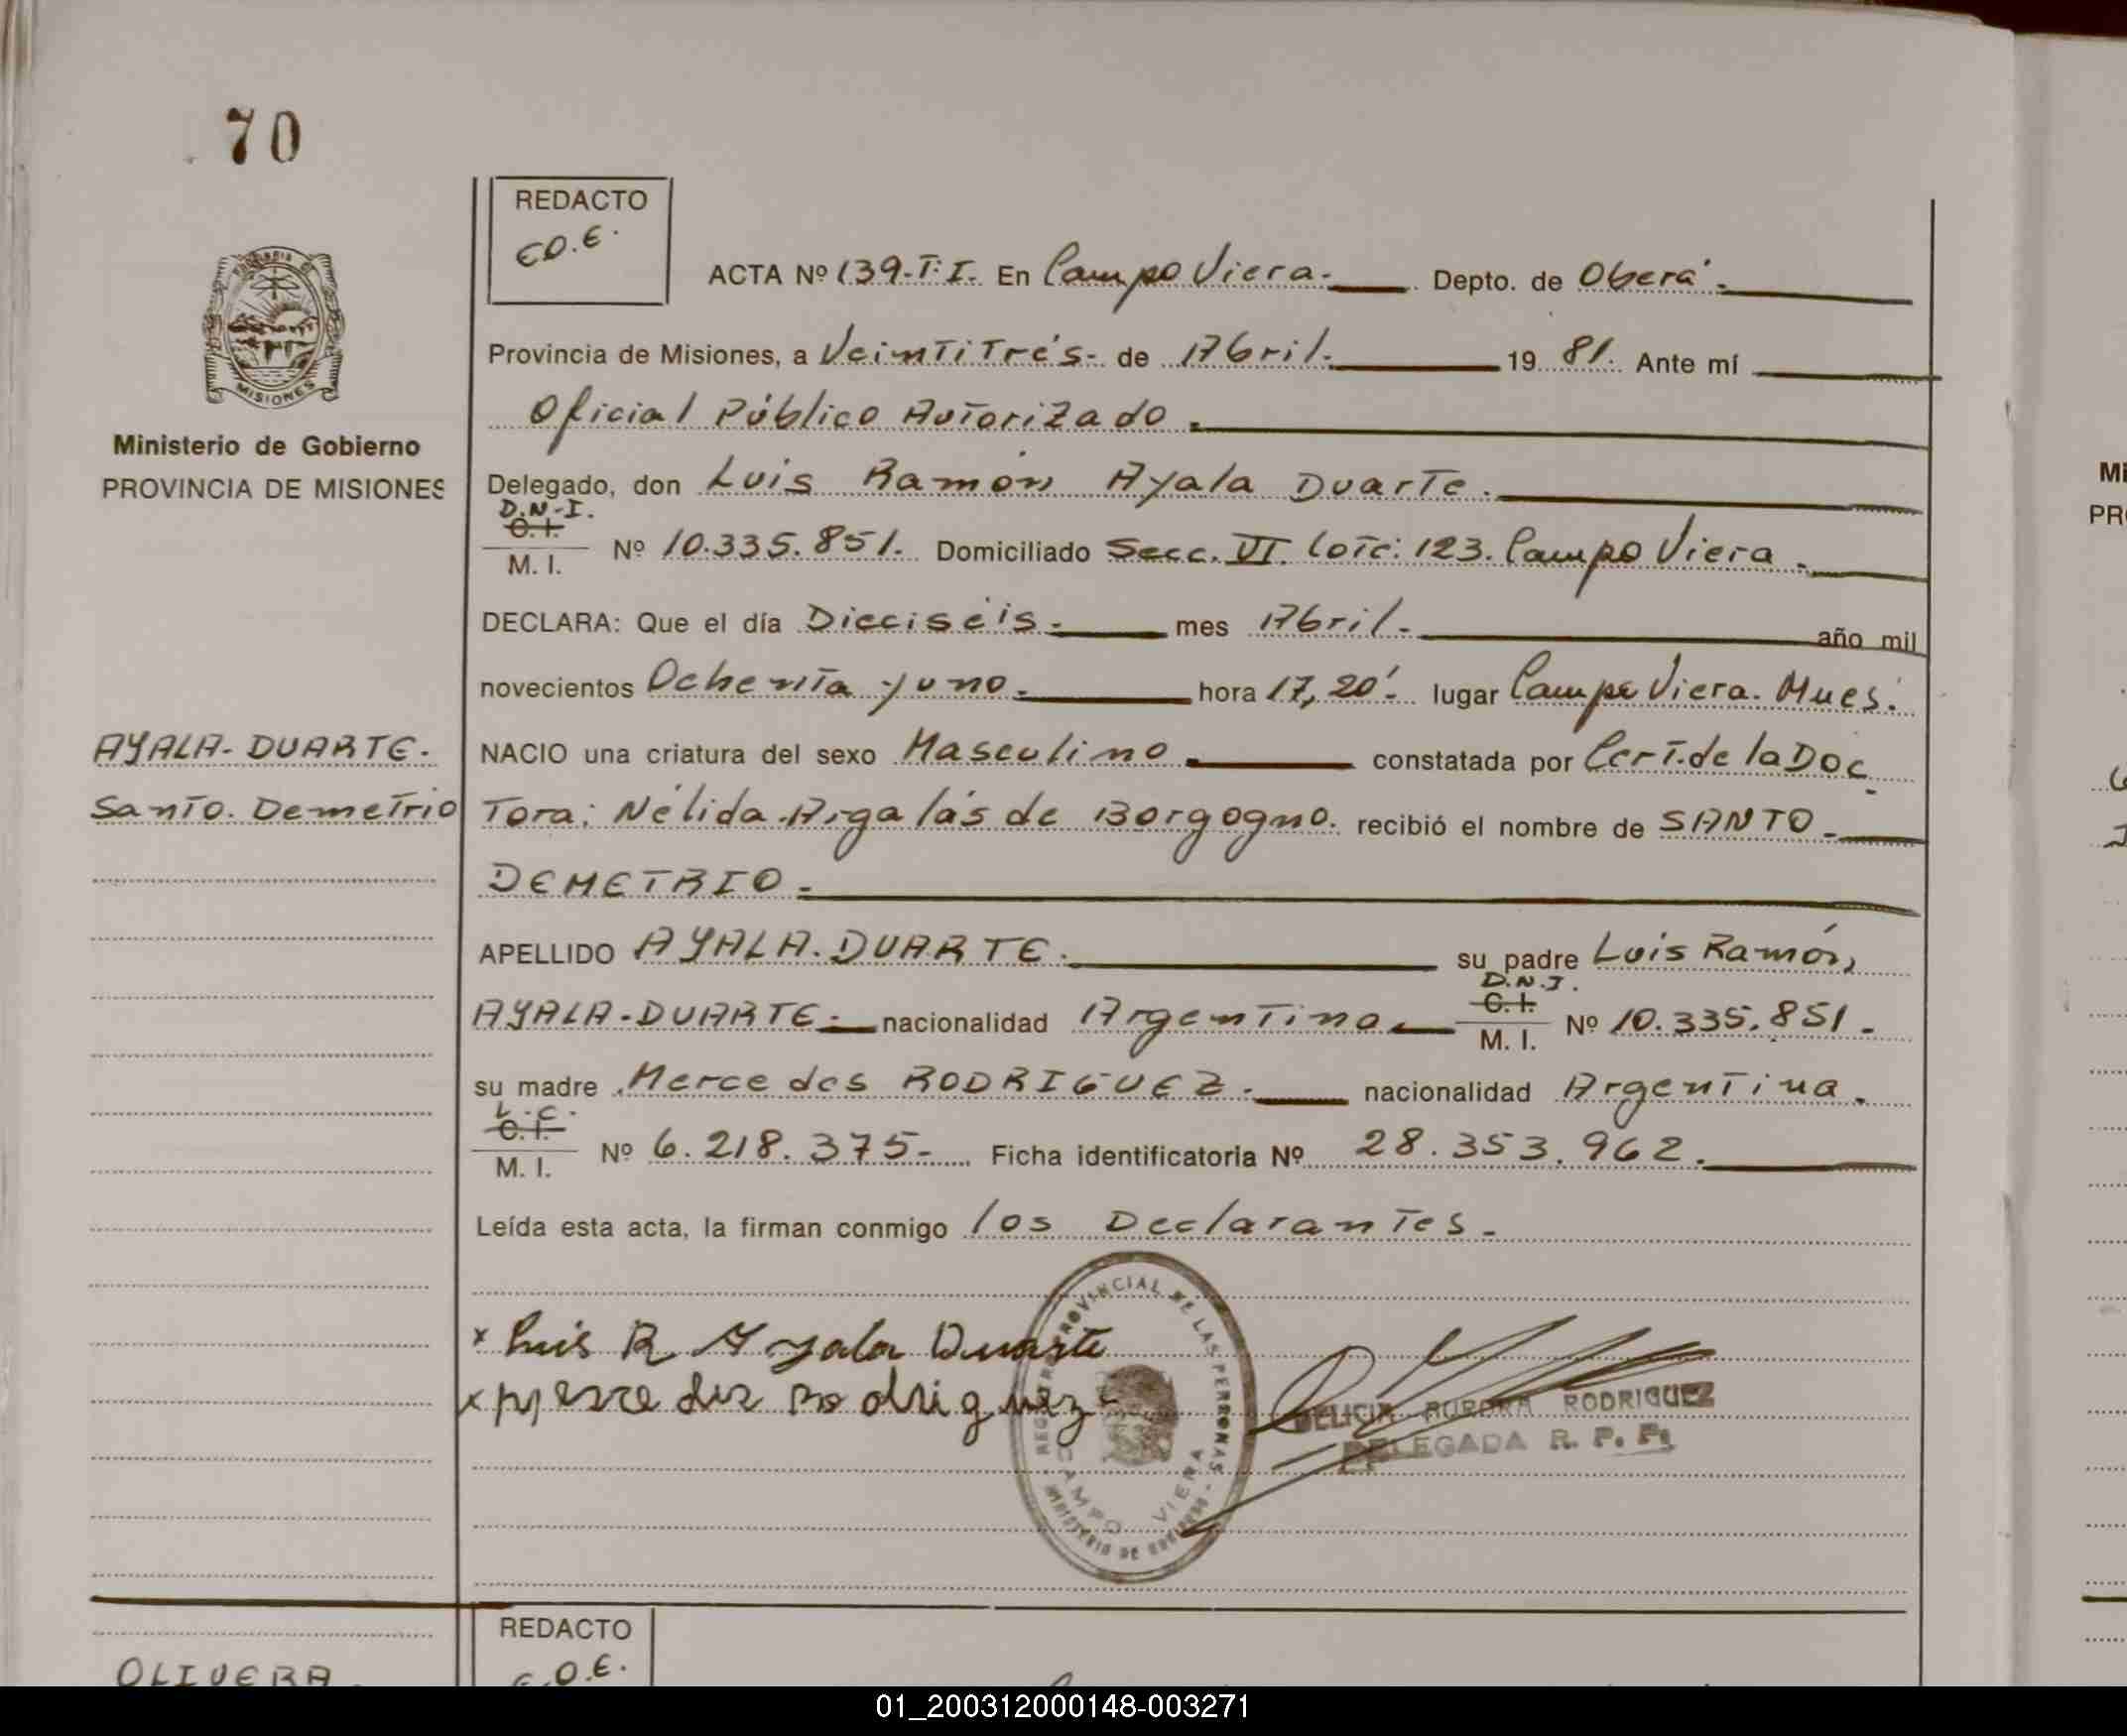 70
REDACTO
E.O.E.
ACTA Nº 139-T:I. En Campo Viera.- Depto. de Oberá.-
Provincia de Misiones, a Veintitrés- de Abril.- 19 81. Ante mí
Oficial Público Autorizado.
MISIONES
Ministerio de Gobierno
PROVINCIA DE MISIONES
Delegado, don Luis Ramón Ayala Duarte.-
D.N.I.
C.I.
M. I. Nº 10.335.851. Domiciliado Secc. VI. Lote: 123. Campo Viera.-
DECLARA: Que el día Dieciséis.- mes Abril.- año mil
novecientos Ochenta y uno.- hora 17,20'. lugar Campo Viera. Mnes.
AYALA-DUARTE.
NACIO una criatura del sexo Masculino.- constatada por Cert. de la Doc
Santo. Demetrio
Tora: Nélida Argalás de Borgogno. recibió el nombre de SANTO.-
DEMETRIO.-
APELLIDO AYALA.DUARTE.- su padre Luis Ramón,
D.N.I.
AYALA-DUARTE.- nacionalidad Argentina- C.I.
M. I. Nº 10.335.851.-
su madre Mercedes RODRIGUEZ.- nacionalidad Argentina.
L.C.
C.I.
M. I. Nº 6.218.375.- Ficha identificatoria Nº 28.353.962.
Leída esta acta, la firman conmigo los Declarantes.-
x Luis R Ayala Duarte
x Mercedes Rodriguez
REGISTRO PROVINCIAL DE LAS PERSONAS
CAMPO VIERA
MINISTERIO DE GOBIERNO
DELICIA AURORA RODRIGUEZ
DELEGADA R. P. P.
REDACTO
E.O.E.
OLIVERA
Mi
PR
01_200312000148-003271